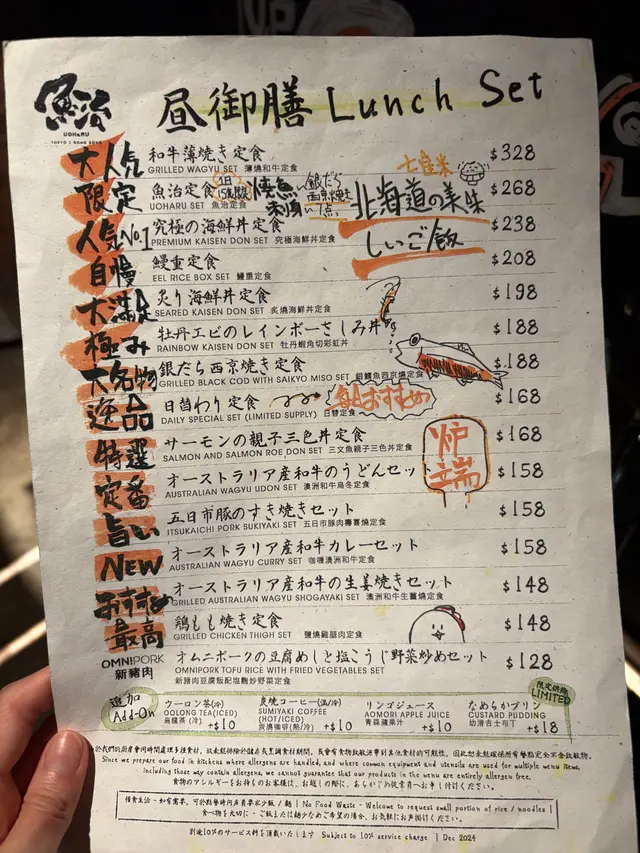 魚治
UOHARU
TOKYO | HONG KONG
昼御膳 Lunch Set
大人気 和牛薄焼き定食 $328
GRILLED WAGYU SET 薄燒和牛定食
限定 魚治定食 1日15食限定 $268
UOHARU SET 魚治定食
銀だら西京焼き
七星米
北海道の美味しいご飯
人気No.1 究極の海鮮丼定食 $238
PREMIUM KAISEN DON SET 究極海鮮丼定食
自慢 鰻重定食 $208
EEL RICE BOX SET 鰻重定食
大満足 炙り海鮮丼定食 $198
SEARED KAISEN DON SET 炙燒海鮮丼定食
極み 牡丹エビのレインボーさしみ丼 $188
RAINBOW KAISEN DON SET 牡丹蝦角切彩虹丼
大名物 銀だら西京焼き定食 $188
GRILLED BLACK COD WITH SAIKYO MISO SET 銀鱈魚西京燒定食
逸品 日替わり定食 $168
DAILY SPECIAL SET (LIMITED SUPPLY) 日替定食
おすすめ
特選 サーモンの親子三色丼定食 $168
SALMON AND SALMON ROE DON SET 三文魚親子三色丼定食
炉端
定番 オーストラリア産和牛のうどんセット $158
AUSTRALIAN WAGYU UDON SET 澳洲和牛烏冬定食
旨い 五日市豚のすき焼きセット $158
ITSUKAICHI PORK SUKIYAKI SET 五日市豚肉壽喜燒定食
NEW オーストラリア産和牛カレーセット $158
AUSTRALIAN WAGYU CURRY SET 咖喱澳洲和牛定食
おすすめ オーストラリア産和牛の生姜焼きセット $148
GRILLED AUSTRALIAN WAGYU SHOGAYAKI SET 澳洲和牛生薑燒定食
最高 鶏もも焼き定食 $148
GRILLED CHICKEN THIGH SET 鹽燒雞腿肉定食
OMNIPORK 新豬肉 オムニポークの豆腐めしと塩こうじ野菜炒めセット $128
OMNIPORK TOFU RICE WITH FRIED VEGETABLES SET
新豬肉豆腐飯配塩麴炒野菜定食
限定供應
LIMITED
追加 Add-On
ウーロン茶(冷)
OOLONG TEA(ICED)
烏龍茶(冷) +$10
炭焼コーヒー(温/冷)
SUMIYAKI COFFEE
(HOT/ICED)
炭燒咖啡(熱/冷) +$10
リンゴジュース
AOMORI APPLE JUICE
青森蘋果汁 +$10
なめらかプリン
CUSTARD PUDDING
幼滑吉士布丁 +$18
Since we prepare our food in kitchens where allergens are handled, and where common equipment and utensils are used for multiple menu items,
including those may contain allergens, we cannot guarantee that our products in the menu are entirely allergen free.
食物のアレルギーをお持ちのお客様は、お越しの際に、あらかじめ従業員へお申し付けください。
惜食生活 - 如有需要，可於點餐時向店員要求少飯 / 麵 | No Food Waste - Welcome to request small portion of rice / noodles |
食べ物を大切に - ご飯または麺少なめご希望の場合、お気軽にお声掛けください。
別途10%のサービス料を頂戴いたします Subject to 10% service charge | Dec 2024